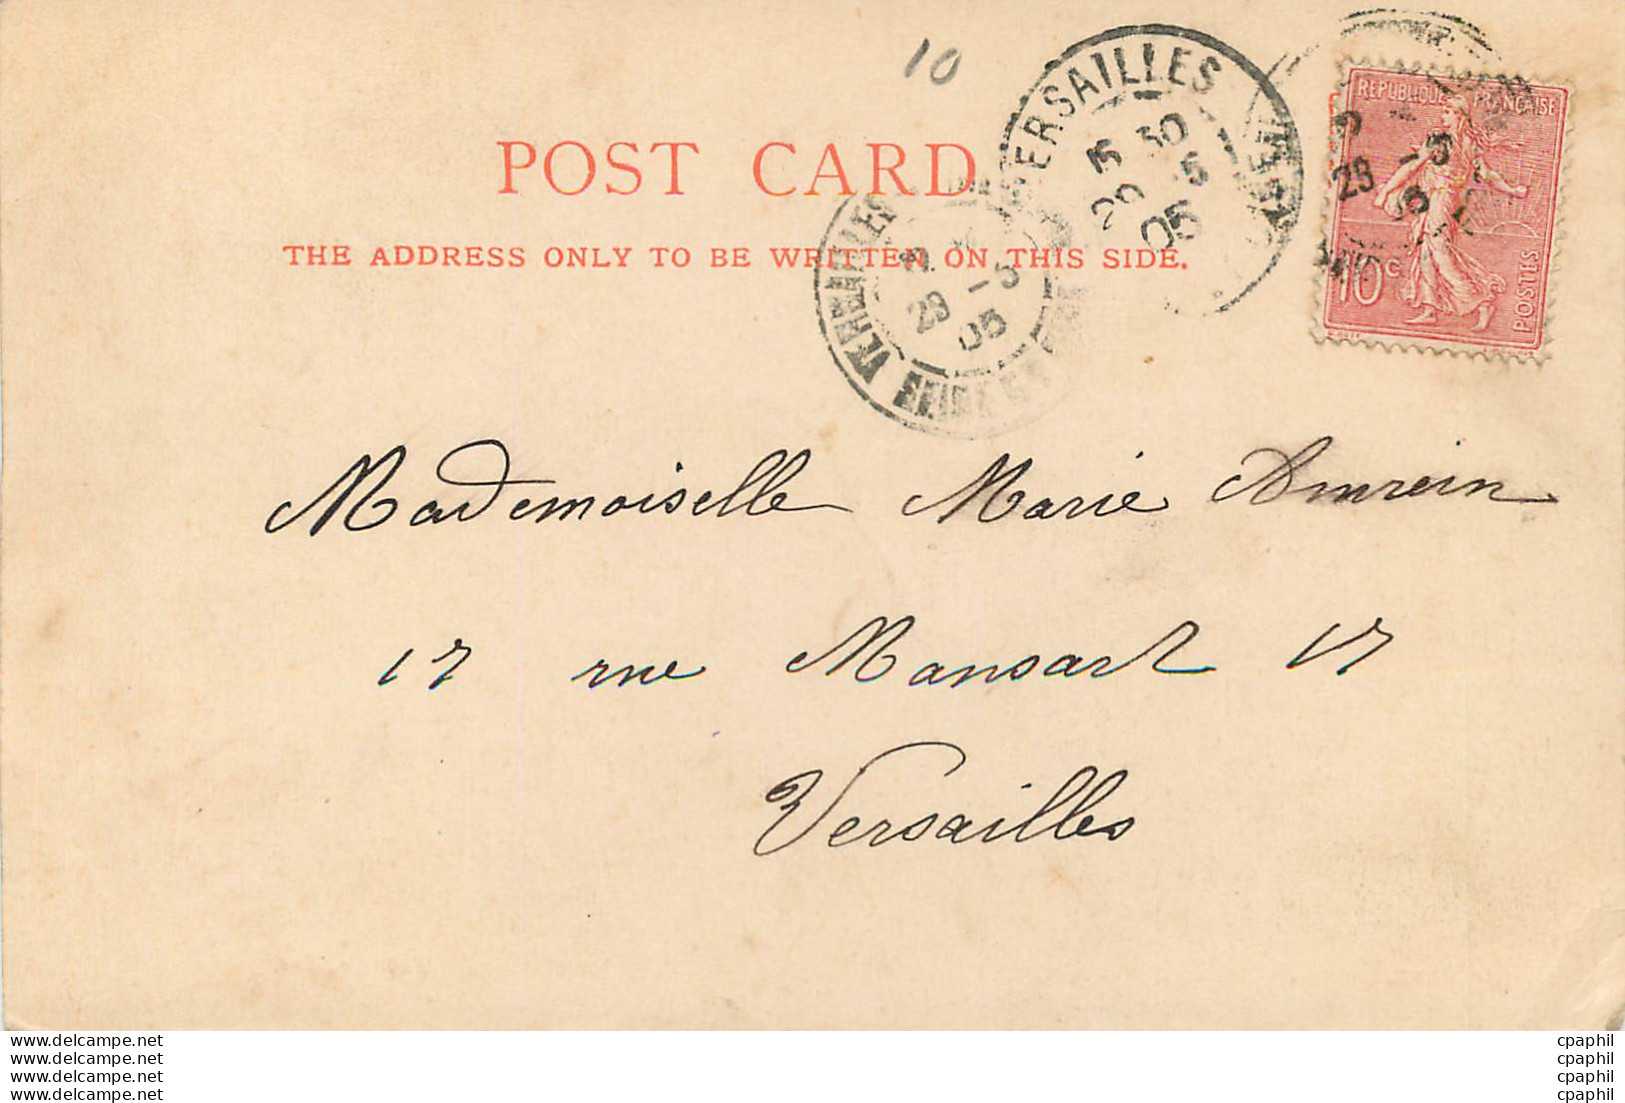 10
POST CARD
THE ADDRESS ONLY TO BE WRITTEN ON THIS SIDE.
VERSAILLES
15 30
29 -5
05
VERSAILLES
29 -5
05
SEINE ET
REPUBLIQUE FRANÇAISE
29 -5
05
10c
POSTES
Mademoiselle Marie Amrein
17 rue Mansart 17
Versailles
www.delcampe.net
www.delcampe.net
www.delcampe.net
www.delcampe.net
cpaphil
cpaphil
cpaphil
cpaphil